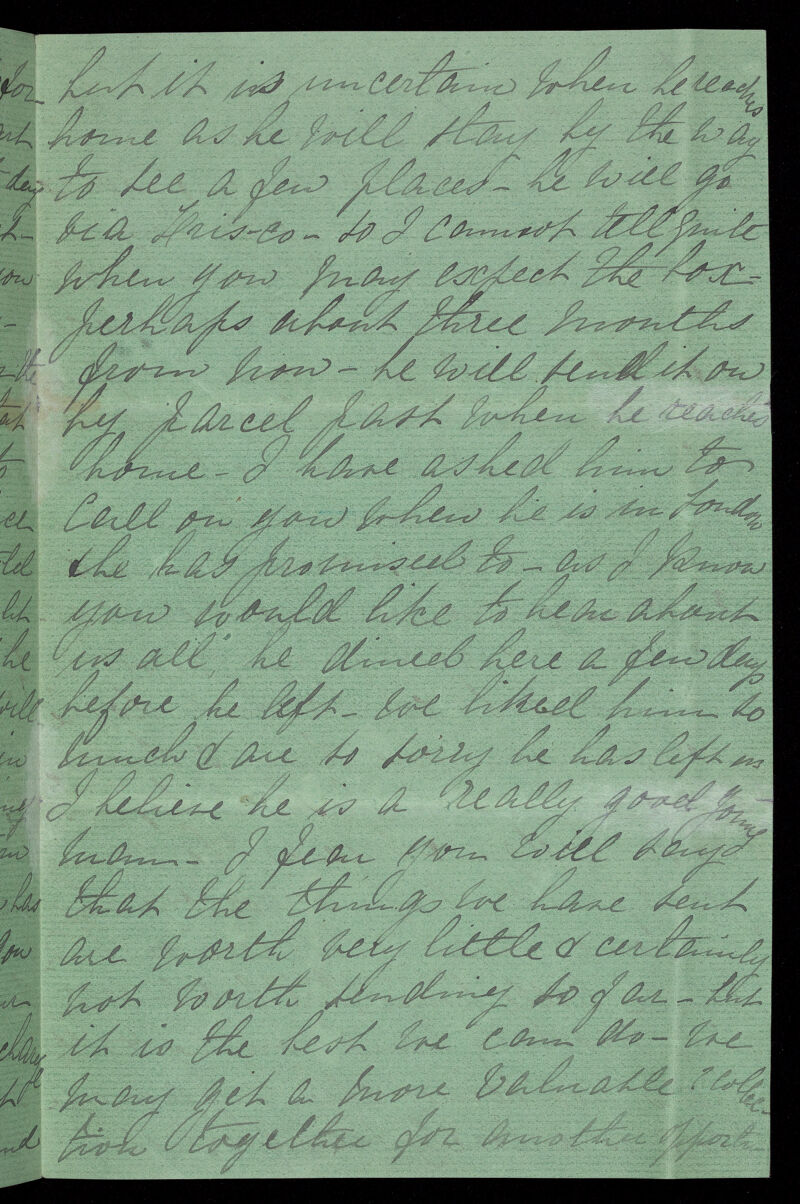 but it is uncertain when he reaches
home as he will stay by the way
to see a few places - he will go
via Fris-co - so I cannot tell quite
when you may expect the box -
perhaps about three months
from now - he will send it on
by parcel post when he reaches
home - I have asked him to
call on you when he is in London
& he has promised to - as I know
you would like to hear about
us all, he dined here a few days
before he left - we liked him so
much & are so sorry he has left us
I believe he is a really good young
man - I fear you will say
that the things we have sent
are worth very little & certainly
not worth sending so far - but
it is the best we can do - we
may get a more valuable collec-
tion together for another opportu-